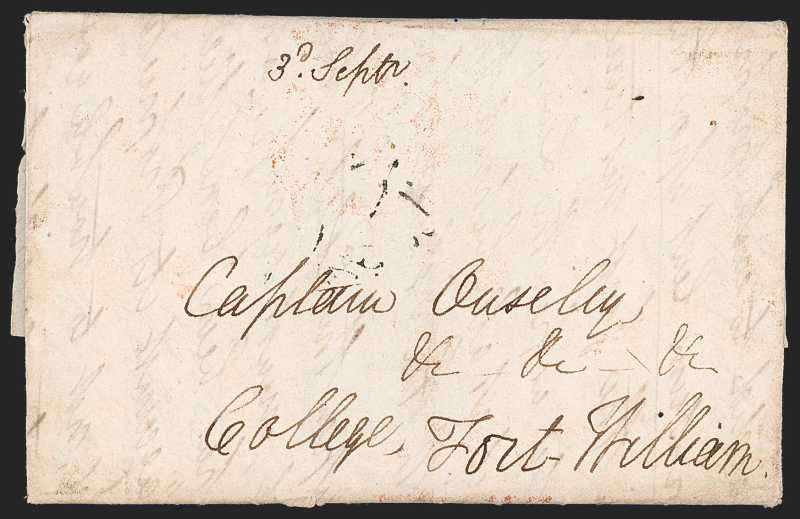 3d. Septr.
Captain Ouseley
&c - &c - &c
College, Fort William.